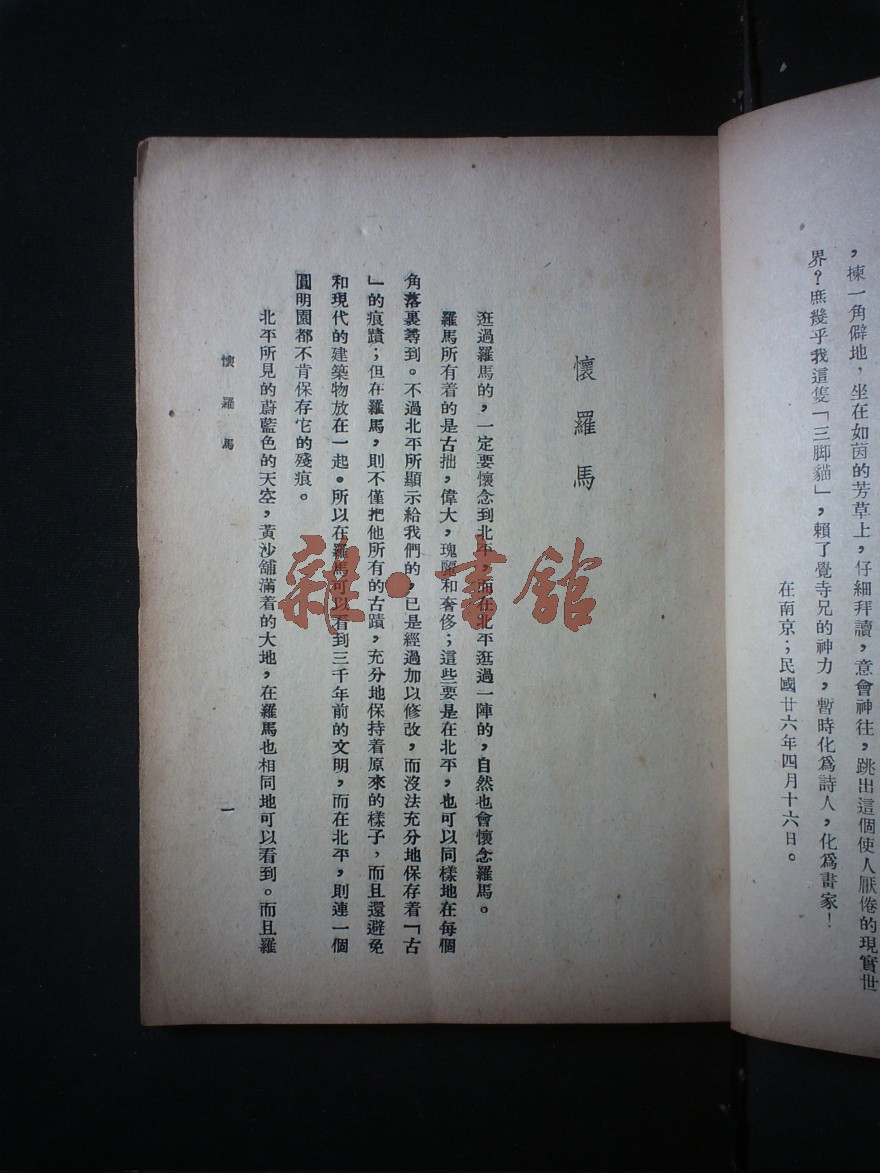 ，揀一角僻地，坐在如茵的芳草上，仔細拜讀，意會神往，跳出這個使人厭倦的現實世
界？庶幾乎我這隻「三脚貓」，賴了覺寺兄的神力，暫時化爲詩人，化爲畫家！
在南京；民國廿六年四月十六日。
懷羅馬
逛過羅馬的，一定要懷念到北平，而在北平逛過一陣的，自然也會懷念羅馬。
羅馬所有着的是古拙，偉大，瑰麗和奢侈；這些要是在北平，也可以同樣地在每個
角落裏尋到。不過北平所顯示給我們的，已是經過加以修改，而沒法充分地保存着「古
」的痕蹟；但在羅馬，則不僅把他所有的古蹟，充分地保持着原來的樣子，而且還避免
和現代的建築物放在一起。所以在羅馬可以看到三千年前的文明，而在北平，則連一個
圓明園都不肯保存它的殘痕。
北平所見的蔚藍色的天空，黃沙舖滿着的大地，在羅馬也相同地可以看到。而且羅
懷羅馬
一
雜·書館